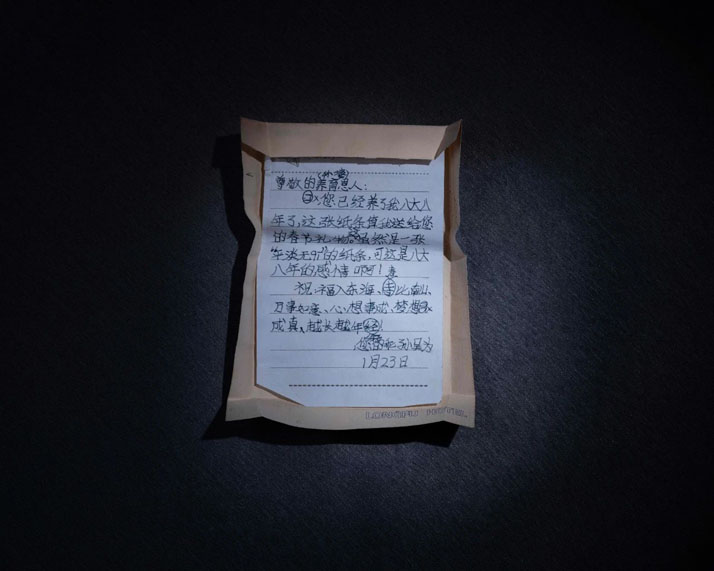 (外婆)
尊敬的养育恩人:
您已经养了我八大八
年了,这张纸条算我送给您
的春节礼物。虽然是一张
的纸条,可这是八大
八年的感情啊!
祝:福入东海、寿比南山、
万事如意、心想事成、梦想
成真、越长越年轻!
您的
1月23日